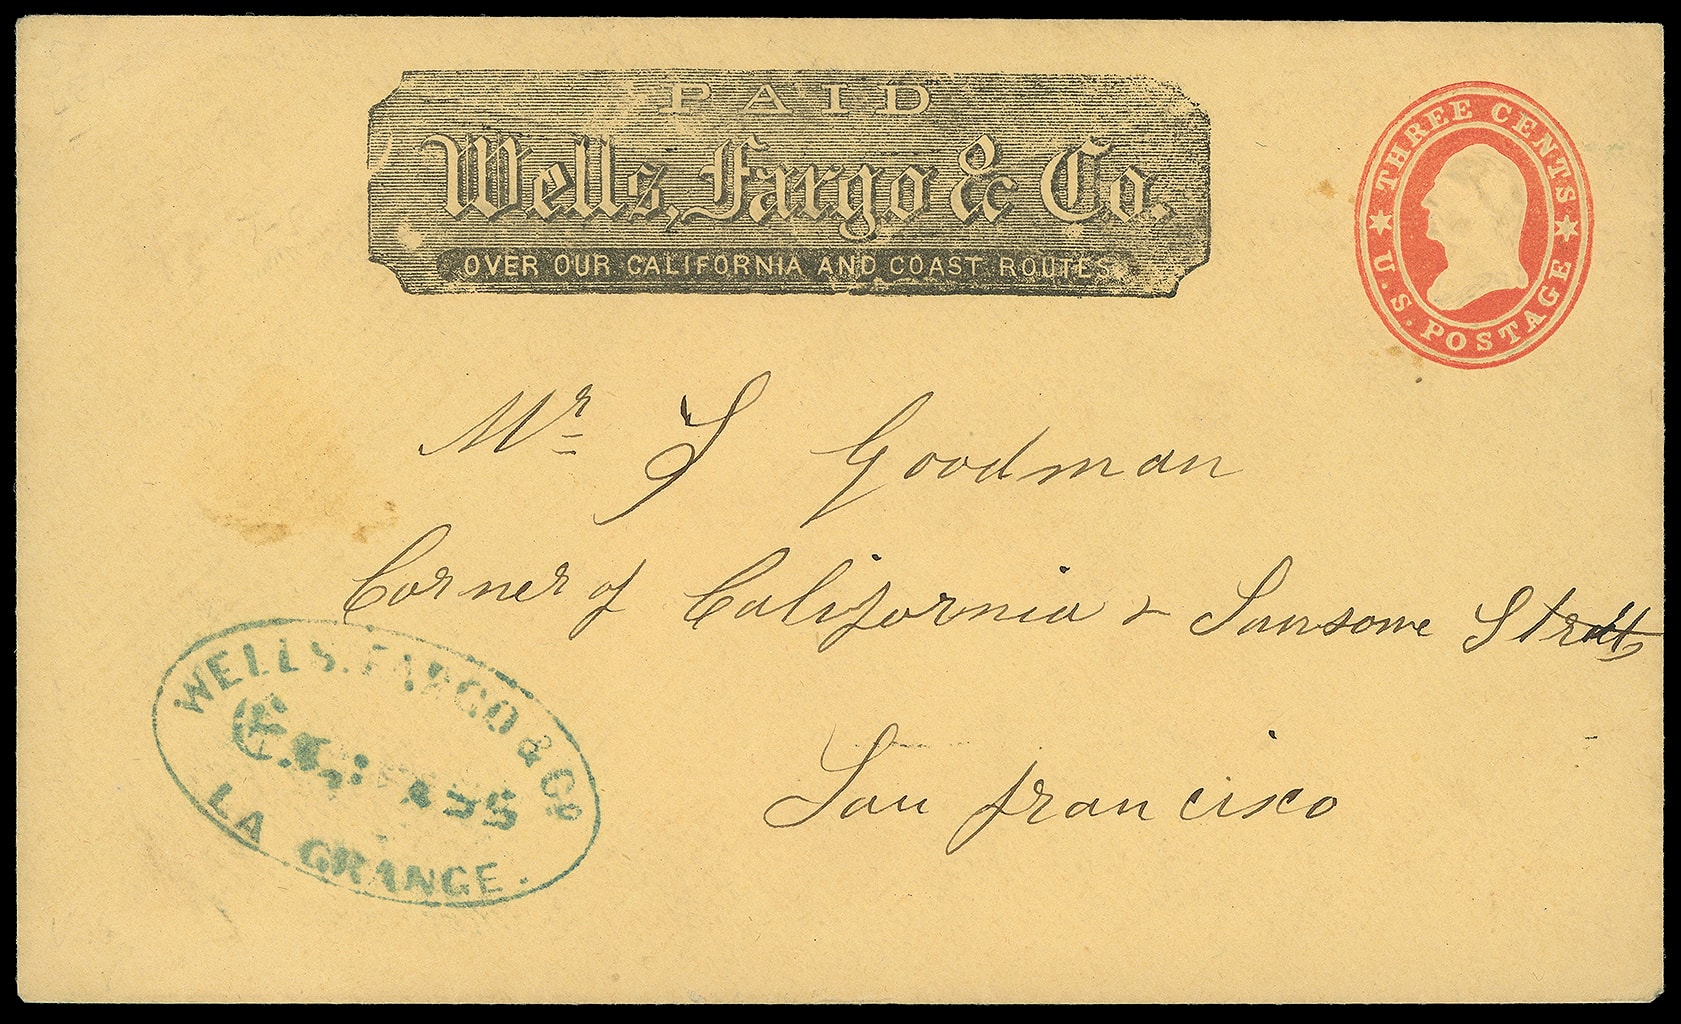 PAID
Wells, Fargo & Co.
OVER OUR CALIFORNIA AND COAST ROUTES.
THREE CENTS
U.S. POSTAGE
Mr S Goodman
Corner of California & Sansome Streets
San Francisco
WELLS, FARGO & CO.
EXPRESS
LA GRANGE.